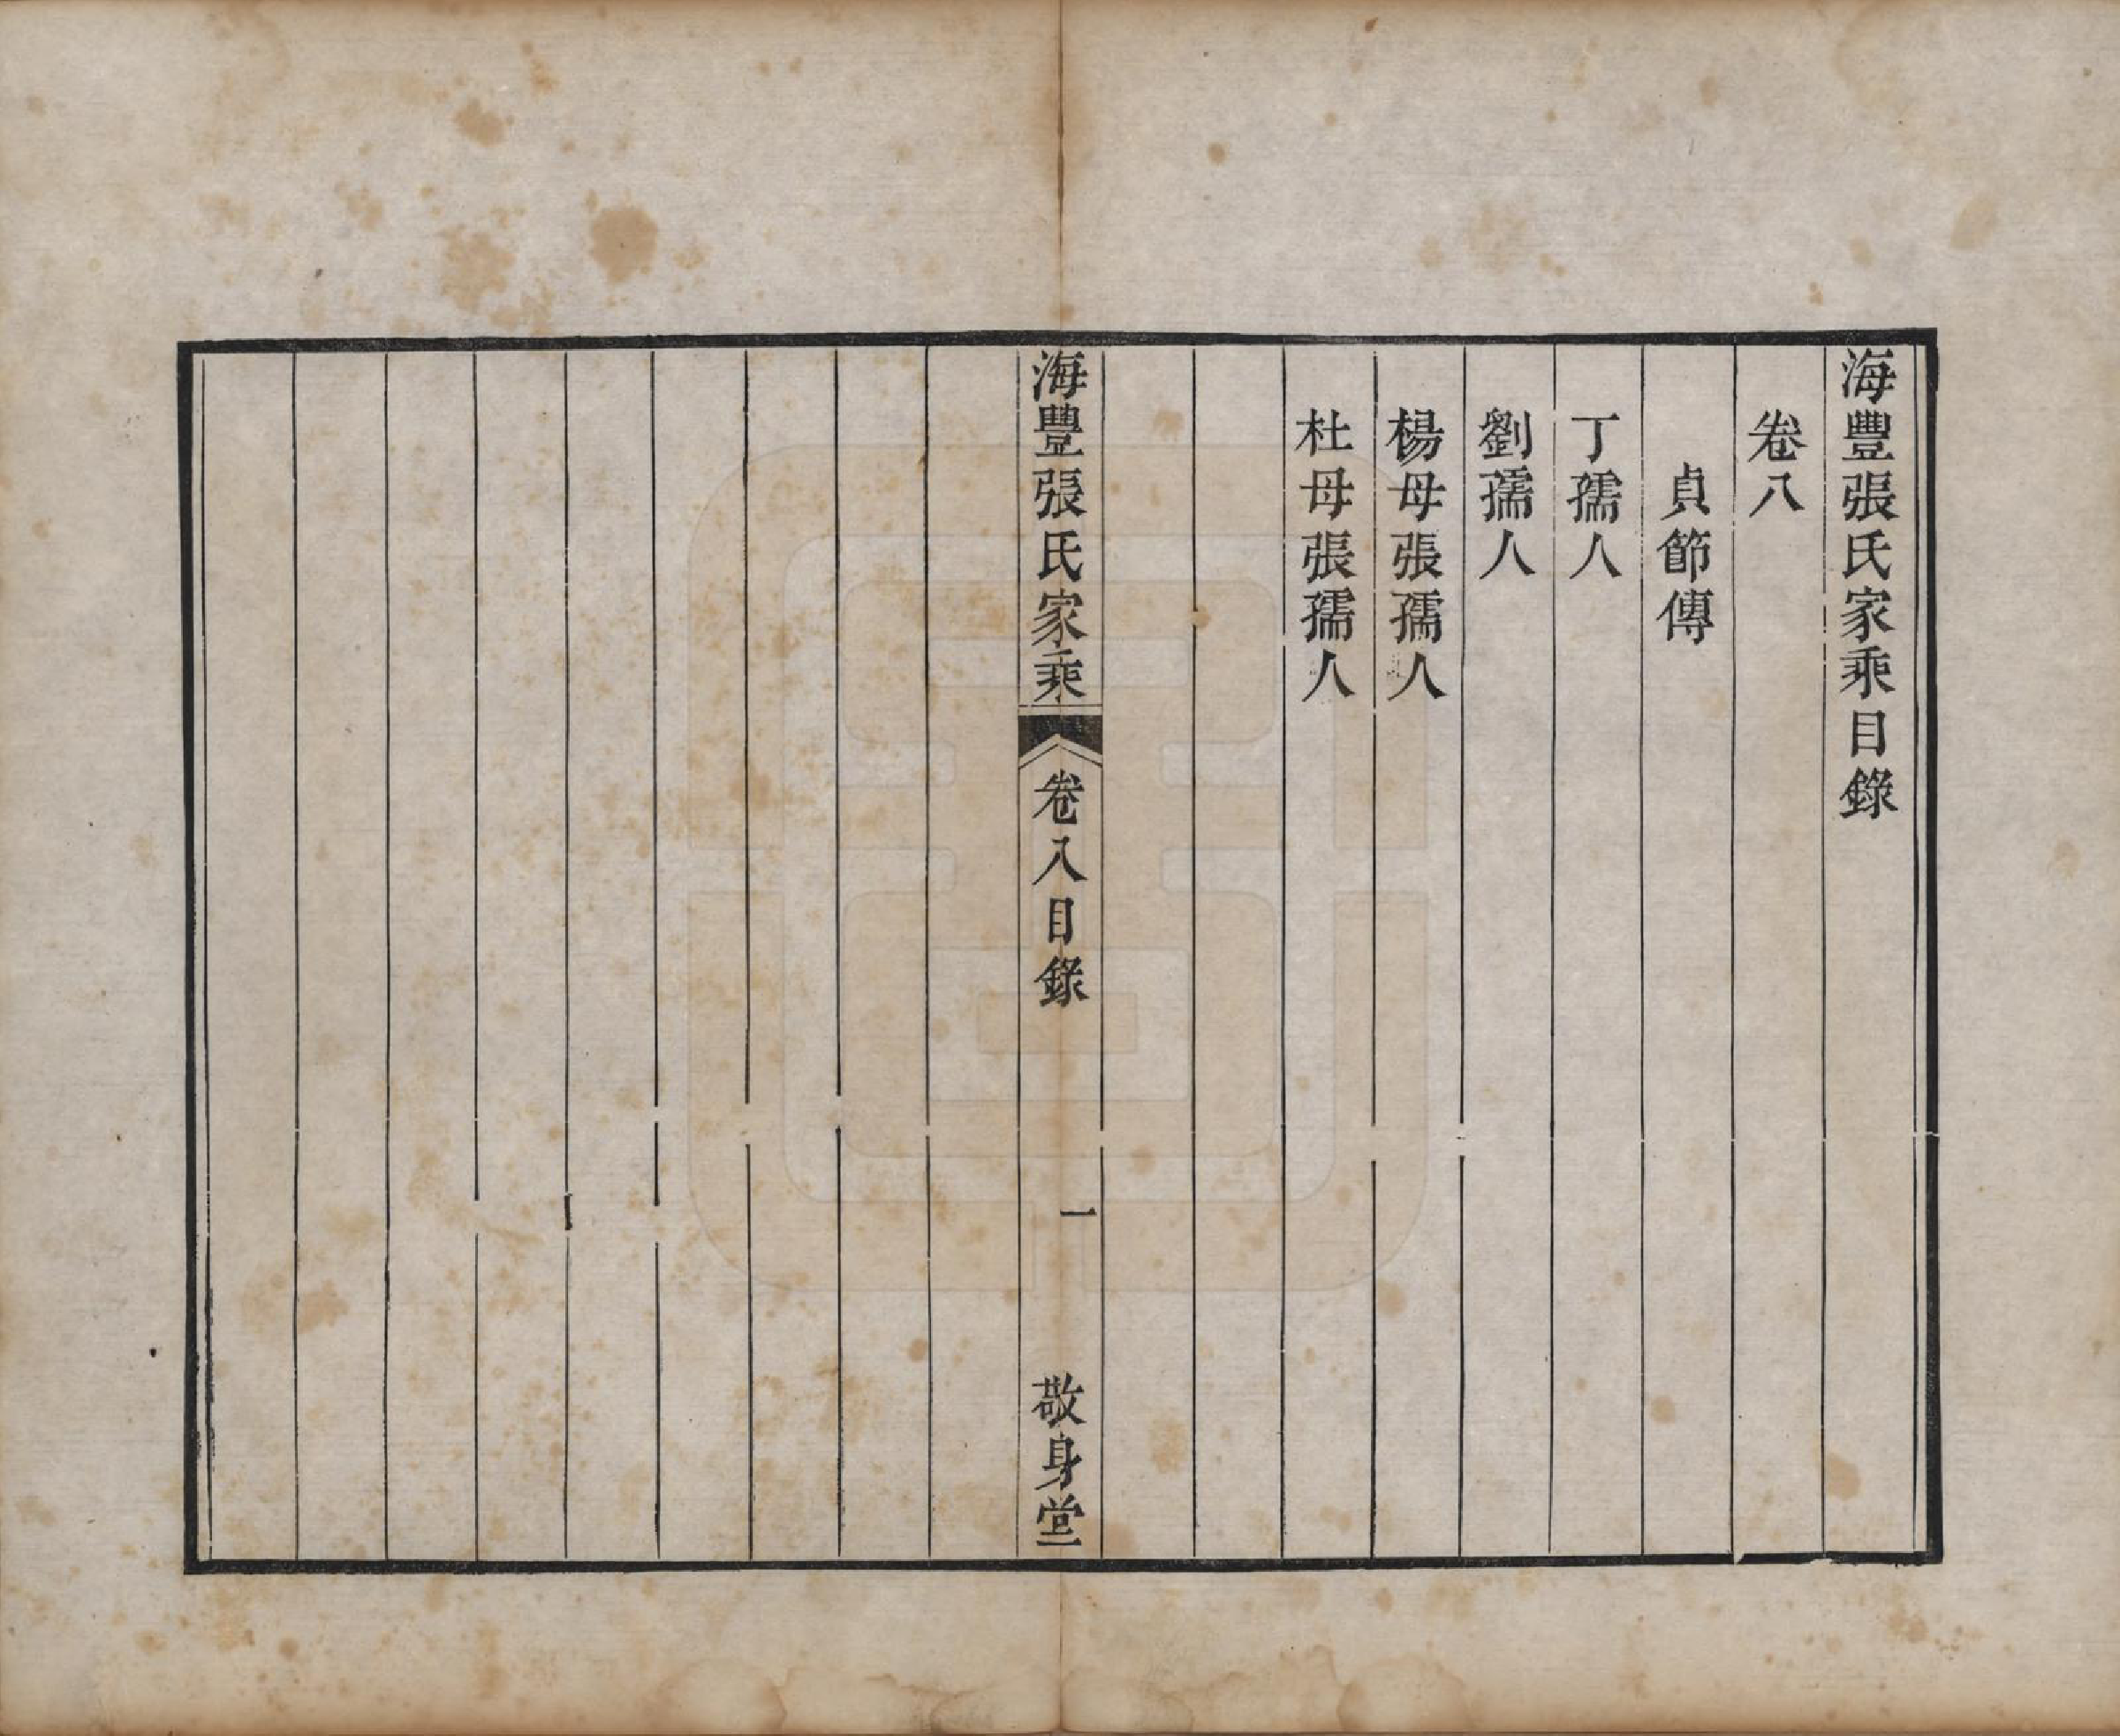 海豐張氏家乘目錄
卷八
貞節傳
丁孺人
劉孺人
楊母張孺人
杜母張孺人
海豐張氏家乘 卷八目錄 一 敬身堂